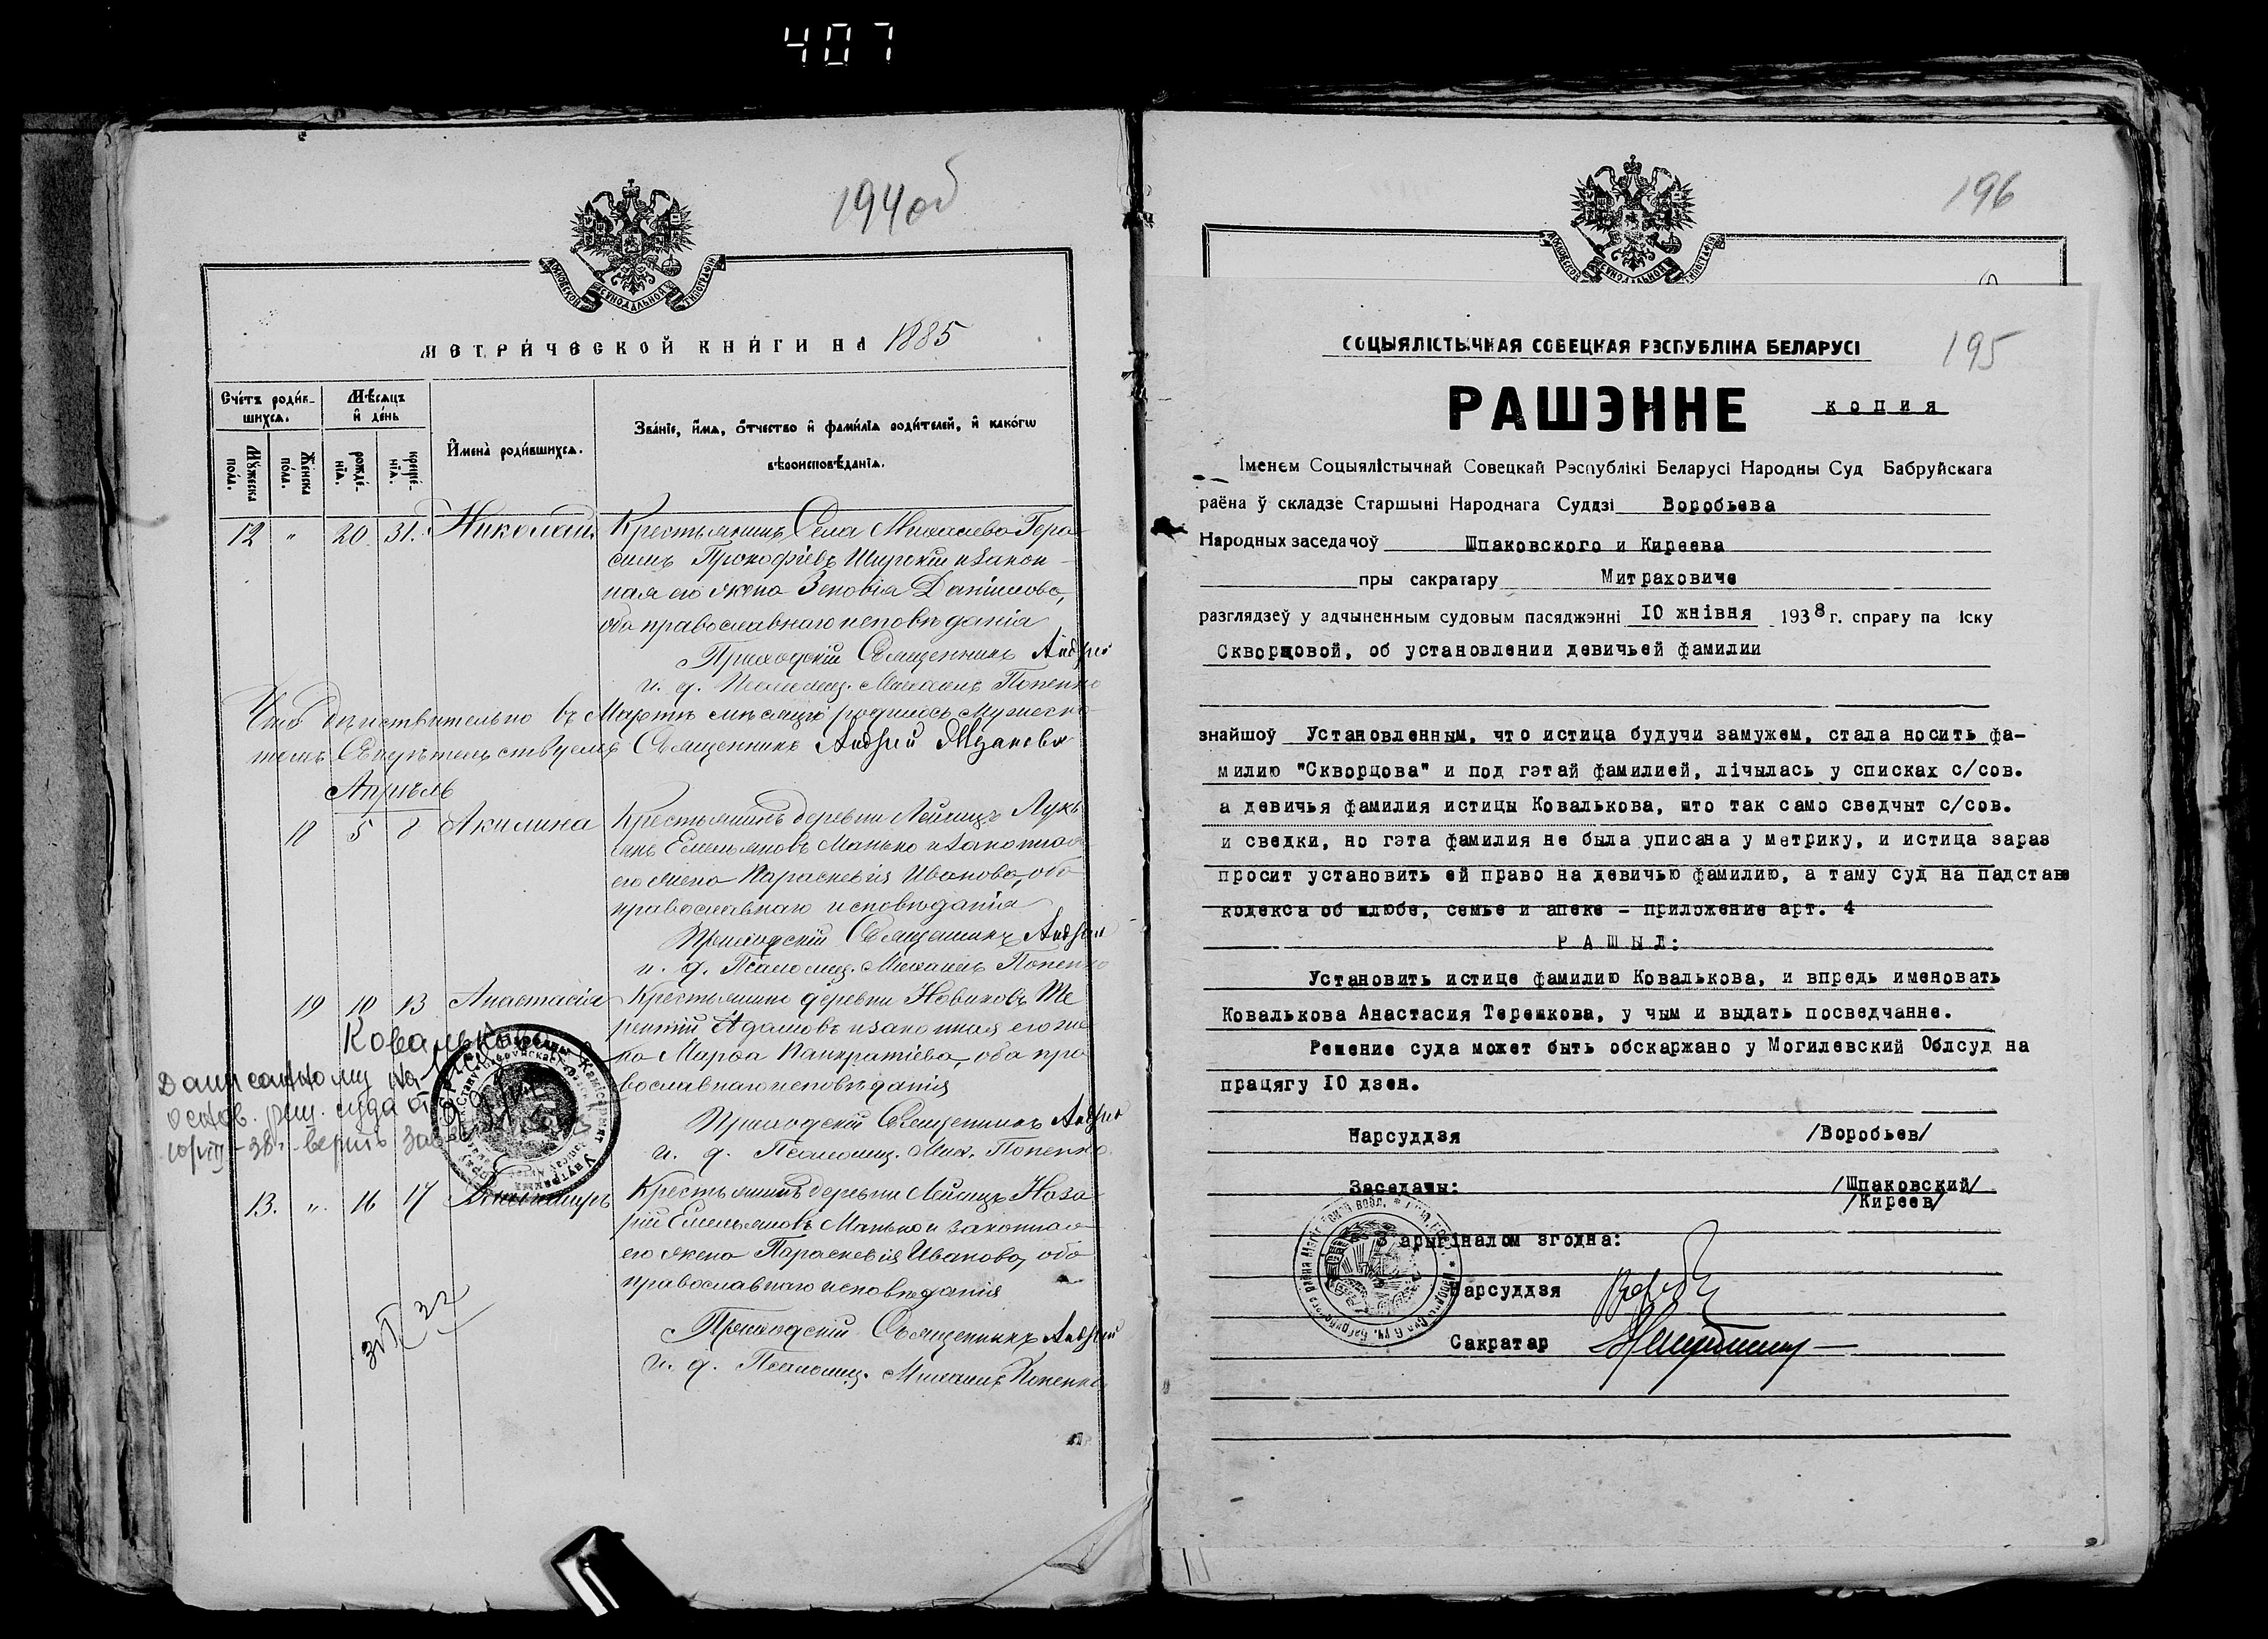 407
194об
МОСКОВСКОЙ СѴНОДАЛЬНОЙ ТИПОГРАФІИ
МЕТРИ́ЧЕСКОЙ КНИ́ГИ НА 1885
Сче́тъ роди́в-
шихся.
Мѣ́сяцъ
и҆ де́нь
Мꙋ́жеска
по́ла.
Же́нска
по́ла.
рожде́-
нїѧ.
креще́-
нїѧ.
И҆мена̀ роди́вшихсѧ.
Зва́нїе, и҆́мѧ, ѻ҆́тчество и҆ фами́лїѧ роди́телей, и҆ како́гѡ
вѣроисповѣ́данїѧ.
12 " 20. 31. Николай Крестьянинъ Села Михалева Гера
симъ Прокофіевъ Широкій и закон-
ная его жена Зеновія Даніилова,
оба православнаго исповѣданія
Приходскій Священникъ Андрей
и. д. Псаломщ. Михаилъ Попенко
Что дѣйствительно въ Мартѣ мѣсяцѣ родилось мужеска
Свидѣтельствуемъ Священникъ Андрей
Апрѣль
18 5 8 Акилина Крестьянинъ деревни Лейчицъ Лукь
янъ Емельяновъ Манько и законная
его жена Параскевія Иванова, оба
православнаго исповѣданія
Приходскій Священникъ Андрей
и. д. Псаломщ. Михаилъ Попенко
19 10 13 Анастасія Крестьянинъ деревни Новиковъ Те
рентій Адамовъ и законная его же
на Марѳа Панкратіева, оба пра
вославнаго исповѣданія
Ковалькова
Дописанному на
основ. реш. суда от
10/VIII-38г. верить
Приходскій Священникъ Андрей
и. д. Псаломщ. Мих. Попенко
13. " 16 17 Крестьянинъ деревни Лейчицъ Наза
рій Емельяновъ Манько и законная
его жена Параскевія Иванова, оба
православнаго исповѣданія
Приходскій Священникъ Андрей
и. д. Псаломщ. Михаилъ Попенко
196
МОСКОВСКОЙ СѴНОДАЛЬНОЙ ТИПОГРАФІИ
195
СОЦЫЯЛІСТЫЧНАЯ СОВЕЦКАЯ РЭСПУБЛІКА БЕЛАРУСІ
РАШЭННЕ копия
Іменем Соцыялістычнай Совецкай Рэспублікі Беларусі Народны Суд Бабруйскага
раёна ў складзе Старшыні Народнага Суддзі Воробьева
Народных заседачоў Шпаковского и Киреева
пры сакратару Митраховиче
разглядзеў у адчыненным судовым пасяджэнні 10 жнівня 1938 г. справу па іску
Скворцовой, об установлении девичьей фамилии
знайшоў Установленным, что истица будучи замужем, стала носить фа-
милию "Скворцова" и под гэтай фамилией, лічылась у списках с/сов.
а девичья фамилия истицы Ковалькова, што так само сведчыт с/сов.
и сведки, но гэта фамилия не была уписана у метрику, и истица зараз
просит установить ей право на девичью фамилию, а таму суд на падставе
кодекса об шлюбе, семье и апеке - приложение арт. 4
РАШЫЛ:
Установить истице фамилию Ковалькова, и впредь именовать
Ковалькова Анастасия Терешкова, у чым и выдать посведчанне.
Решение суда может быть обскаржано у Могилевский Облсуд на
працягу 10 дзен.
Нарсуддзя /Воробьев/
Заседачы: /Шпаковский/
/Киреев/
З арыгіналом згодна:
Нарсуддзя
Сакратар